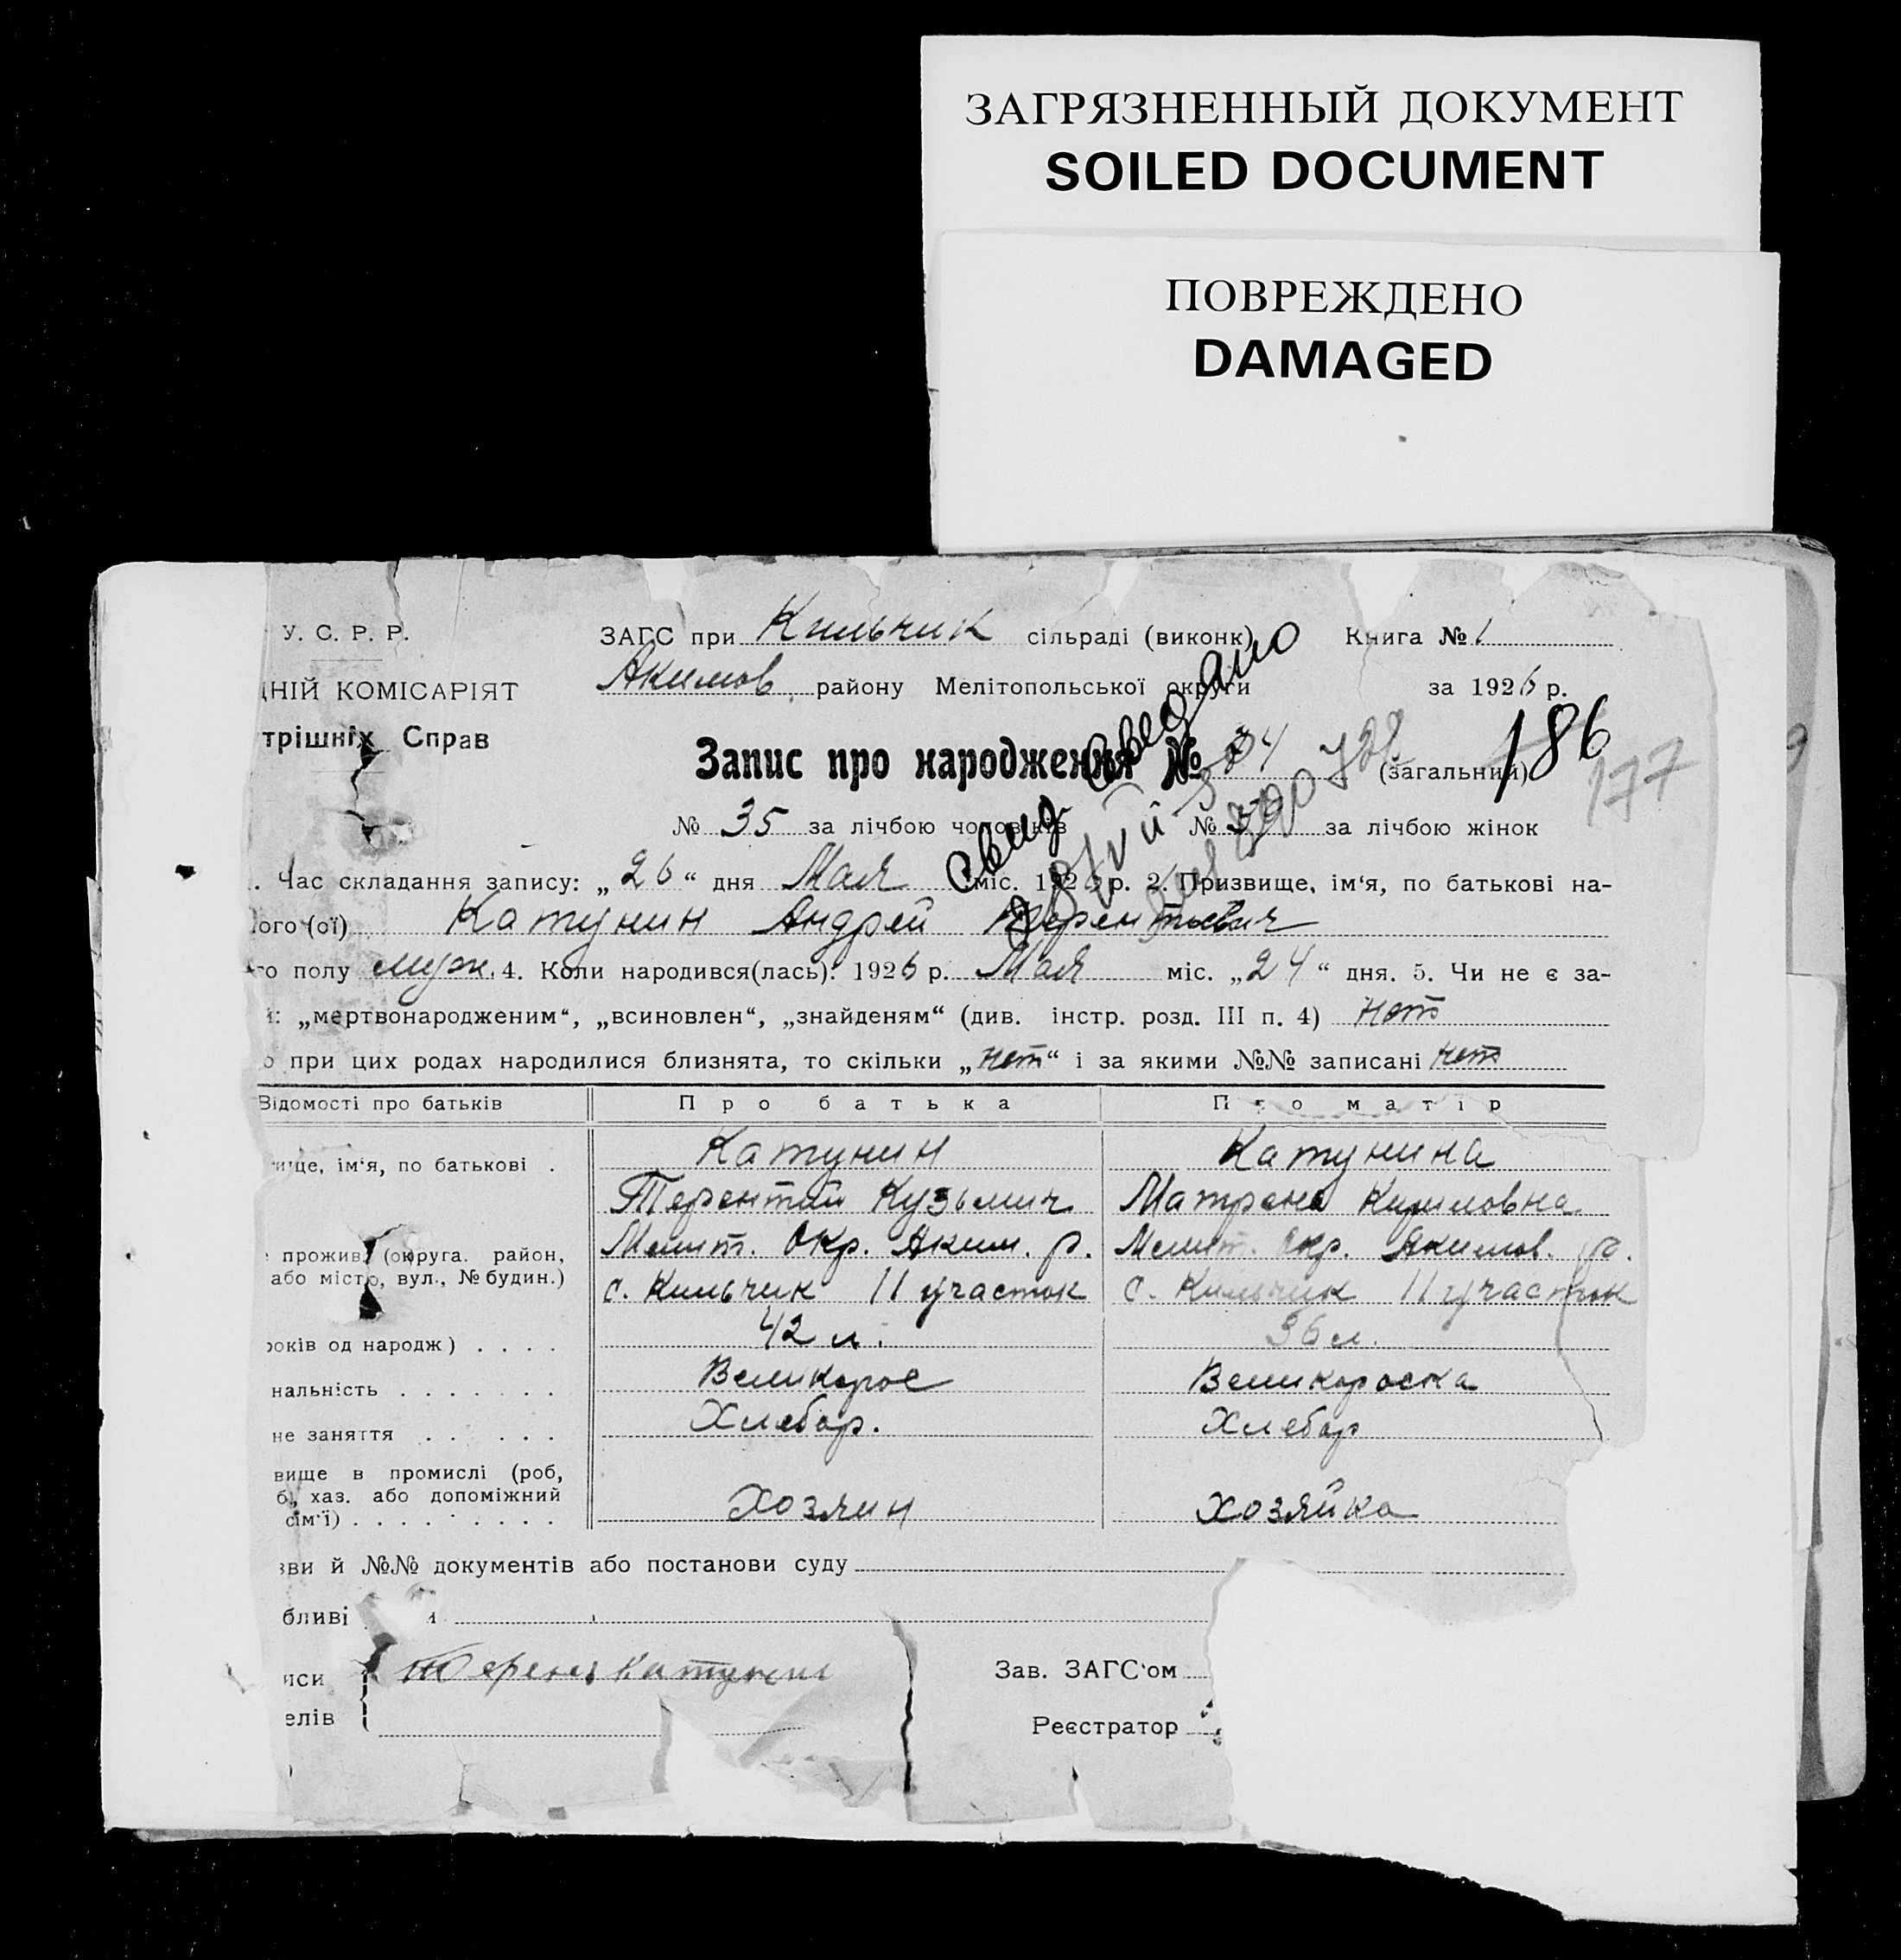 ЗАГРЯЗНЕННЫЙ ДОКУМЕНТ
SOILED DOCUMENT
ПОВРЕЖДЕНО
DAMAGED
У. С. Р. Р. ЗАГС при Кильчик сільраді (виконк) Книга № 1
ЦНІЙ КОМІСАРІЯТ Акимов. району Мелітопольської округи за 1926 р.
трішніх Справ
Запис про народження № (загальний) 186
177
№ 35 за лічбою чоловіків № 39 за лічбою жінок
свид. выдано
. Час складання запису: „26“ дня Мая міс. 1926 р. 2. Призвище, ім‘я, по батькові на-
ого (ої) Катунин Андрей Терентьевич
го полу муж. 4. Коли народився(лась): 1926 р. Мая міс. „24“ дня. 5. Чи не є за-
: „мертвонародженим“, „всиновлен“, „знайденям“ (див. інстр. розд. III п. 4) нет
о при цих родах народилися близнята, то скільки „нет“ і за якими №№ записані нет
Відомості про батьків Про батька Про матір
ище, ім‘я, по батькові . Катунин Катунина
Терентий Кузьмич Матрена Кириловна
прожив. (округа. район, Мелит. Окр. Аким. р. Мелит. Окр. Акимов. р.
або місто, вул., № будин.) с. Кильчик 11 участок с. Кильчик 11 участок
років од народж) . . . . 42 л. 36 л.
нальність . . . . . . . Великорос Великороска
не заняття . . . . . . Хлебор. Хлебор
вище в промислі (роб,
б, хаз. або допоміжний
сім‘ї) . . . . . . . . . Хозяин Хозяйка
зви й №№ документів або постанови суду
бливі
иси Терен. Катунин Зав. ЗАГС‘ом
елів Реєстратор